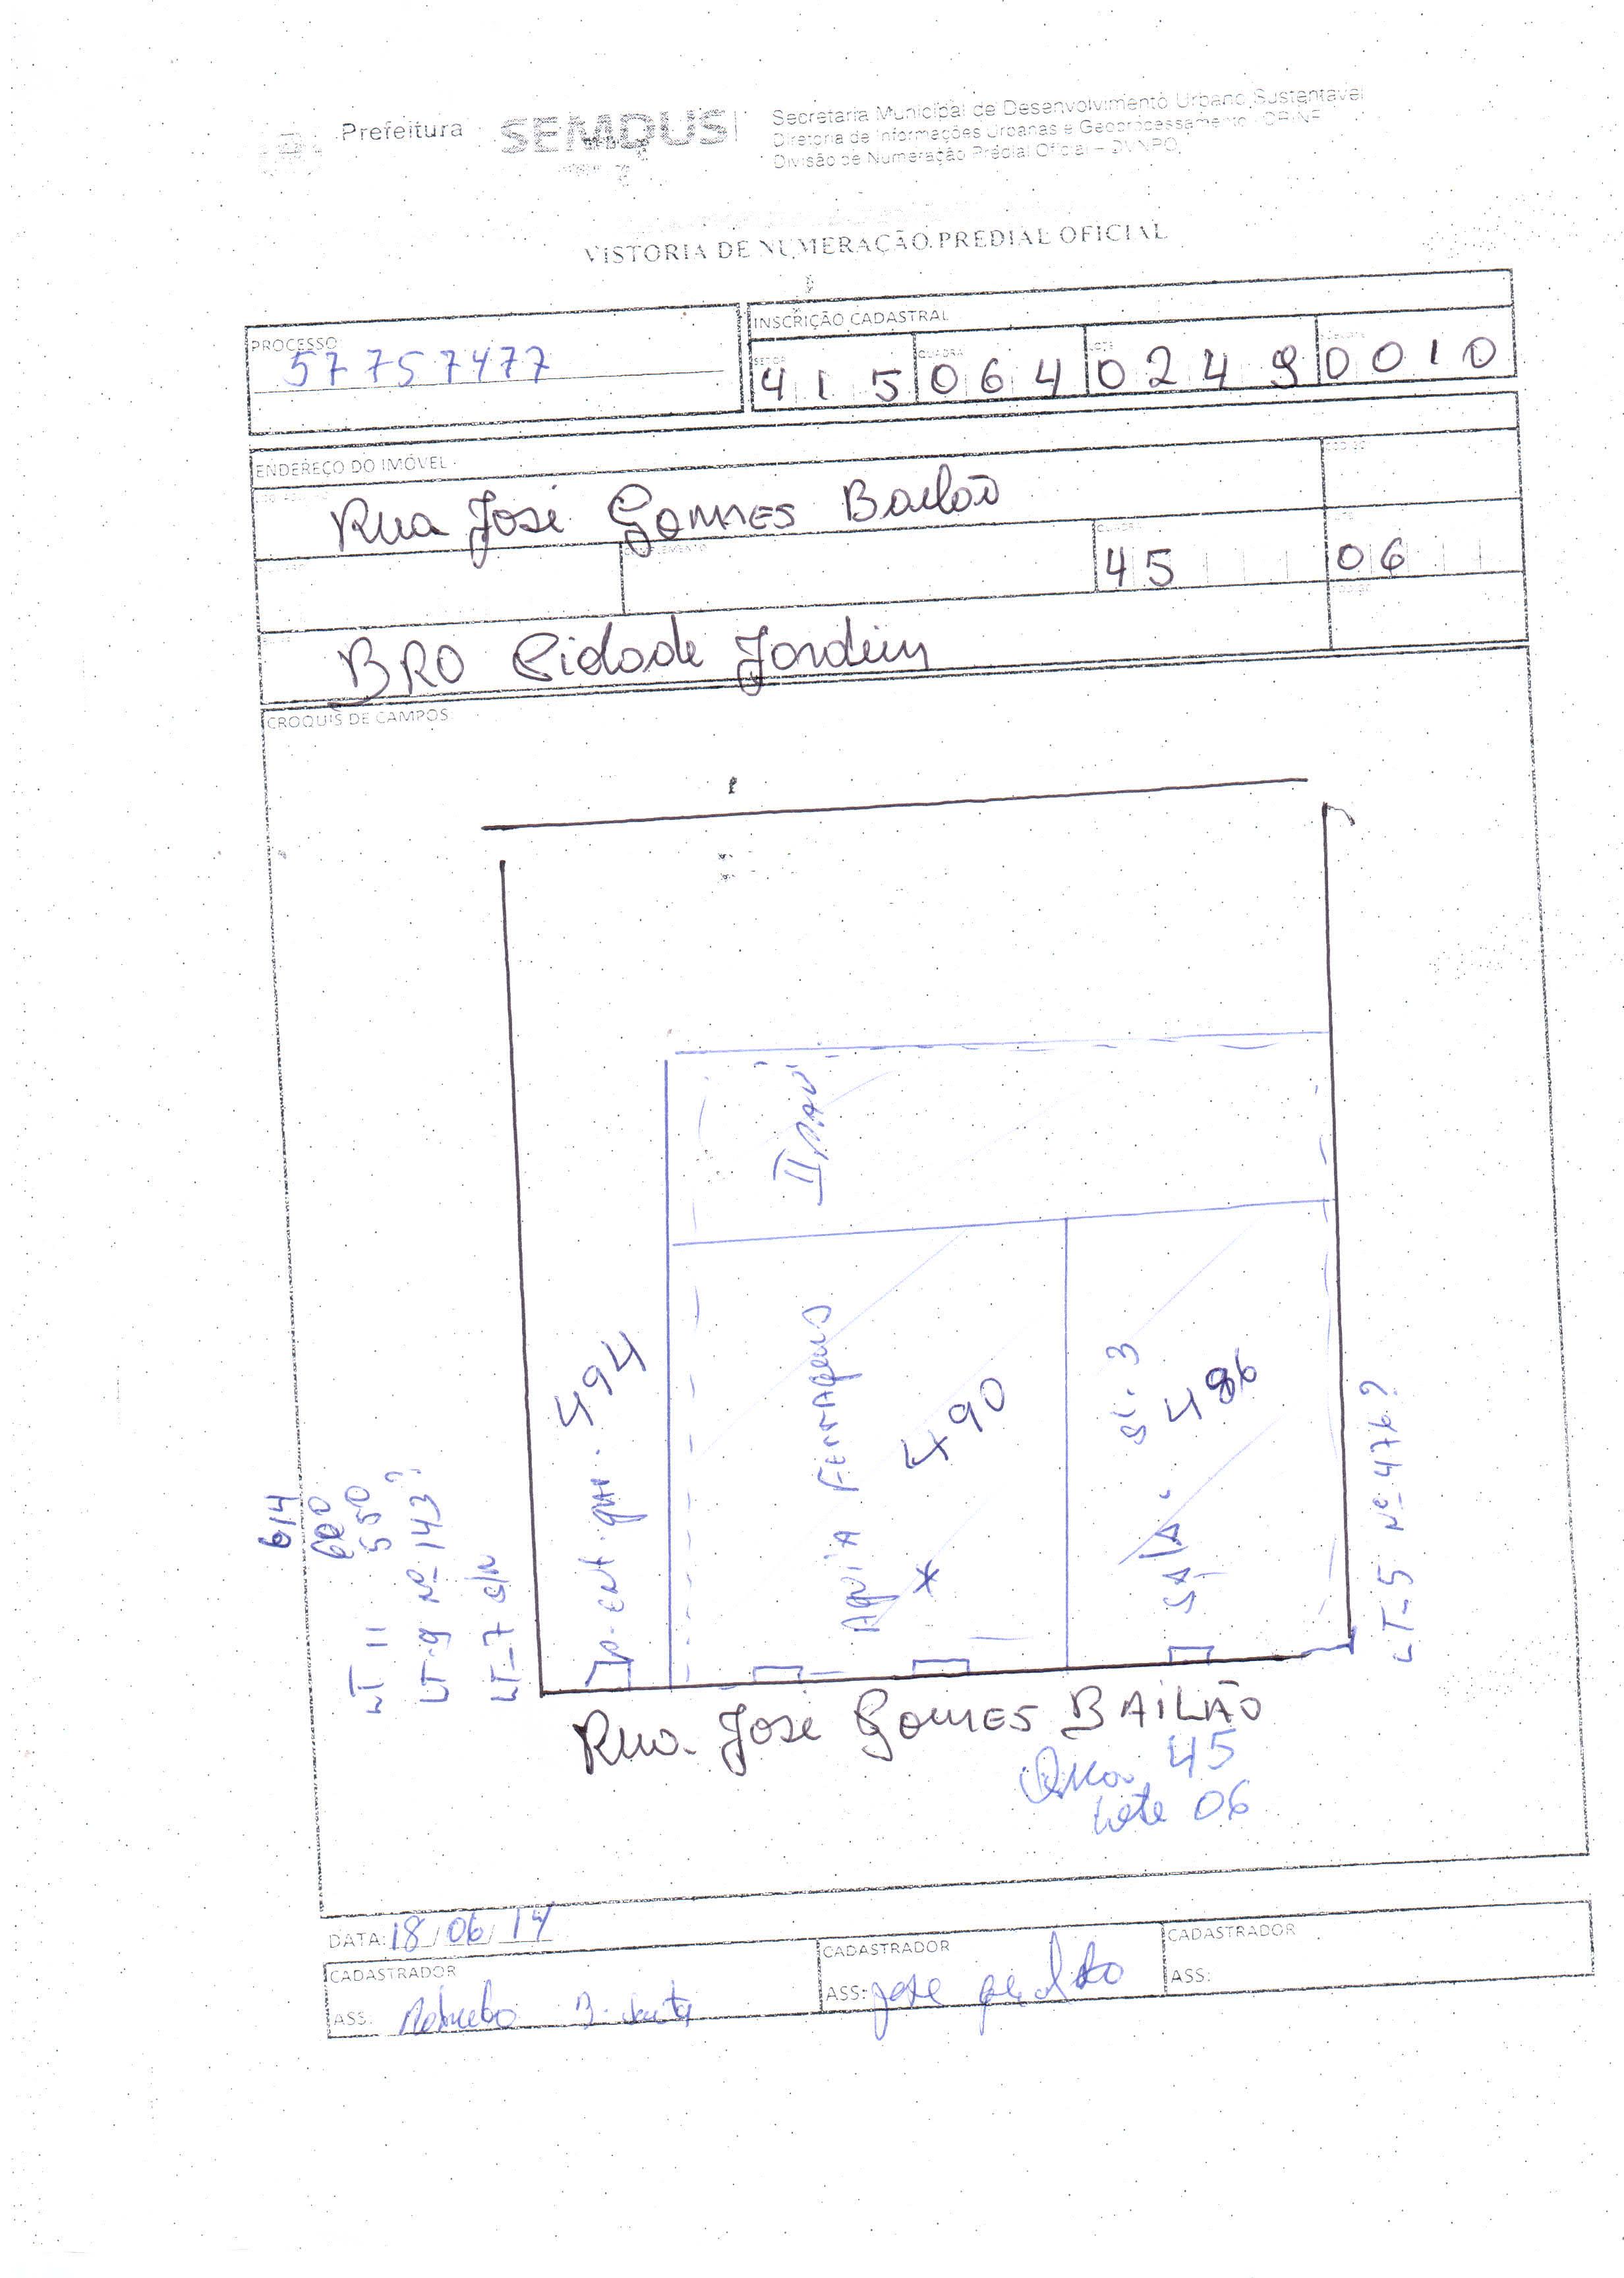 Prefeitura SEMDUS
Secretaria Municipal de Desenvolvimento Urbano Sustentável
Diretoria de Informações Urbanas e Geoprocessamento
Divisão de Numeração Predial Oficial – DVNPO
VISTORIA DE NUMERAÇÃO PREDIAL OFICIAL
PROCESSO
57757477
INSCRIÇÃO CADASTRAL
SETOR QUADRA LOTE
415 064 0249 0010
ENDEREÇO DO IMÓVEL
Rua José Gomes Bailão
QUADRA
45 06
BRO Cidade Jardim
CROQUIS DE CAMPOS
II PAV
494
AquiA FerrAgens
490
SALA
Sl. 3
486
614
600
550
LT 11
LT-9 Nº 143?
LT-7 S/N
LT-5 Nº 476?
Rua José Gomes BAILÃO
Qda 45
Lote 06
DATA: 18/06/14
CADASTRADOR
ASS:
CADASTRADOR
ASS: José
CADASTRADOR
ASS: